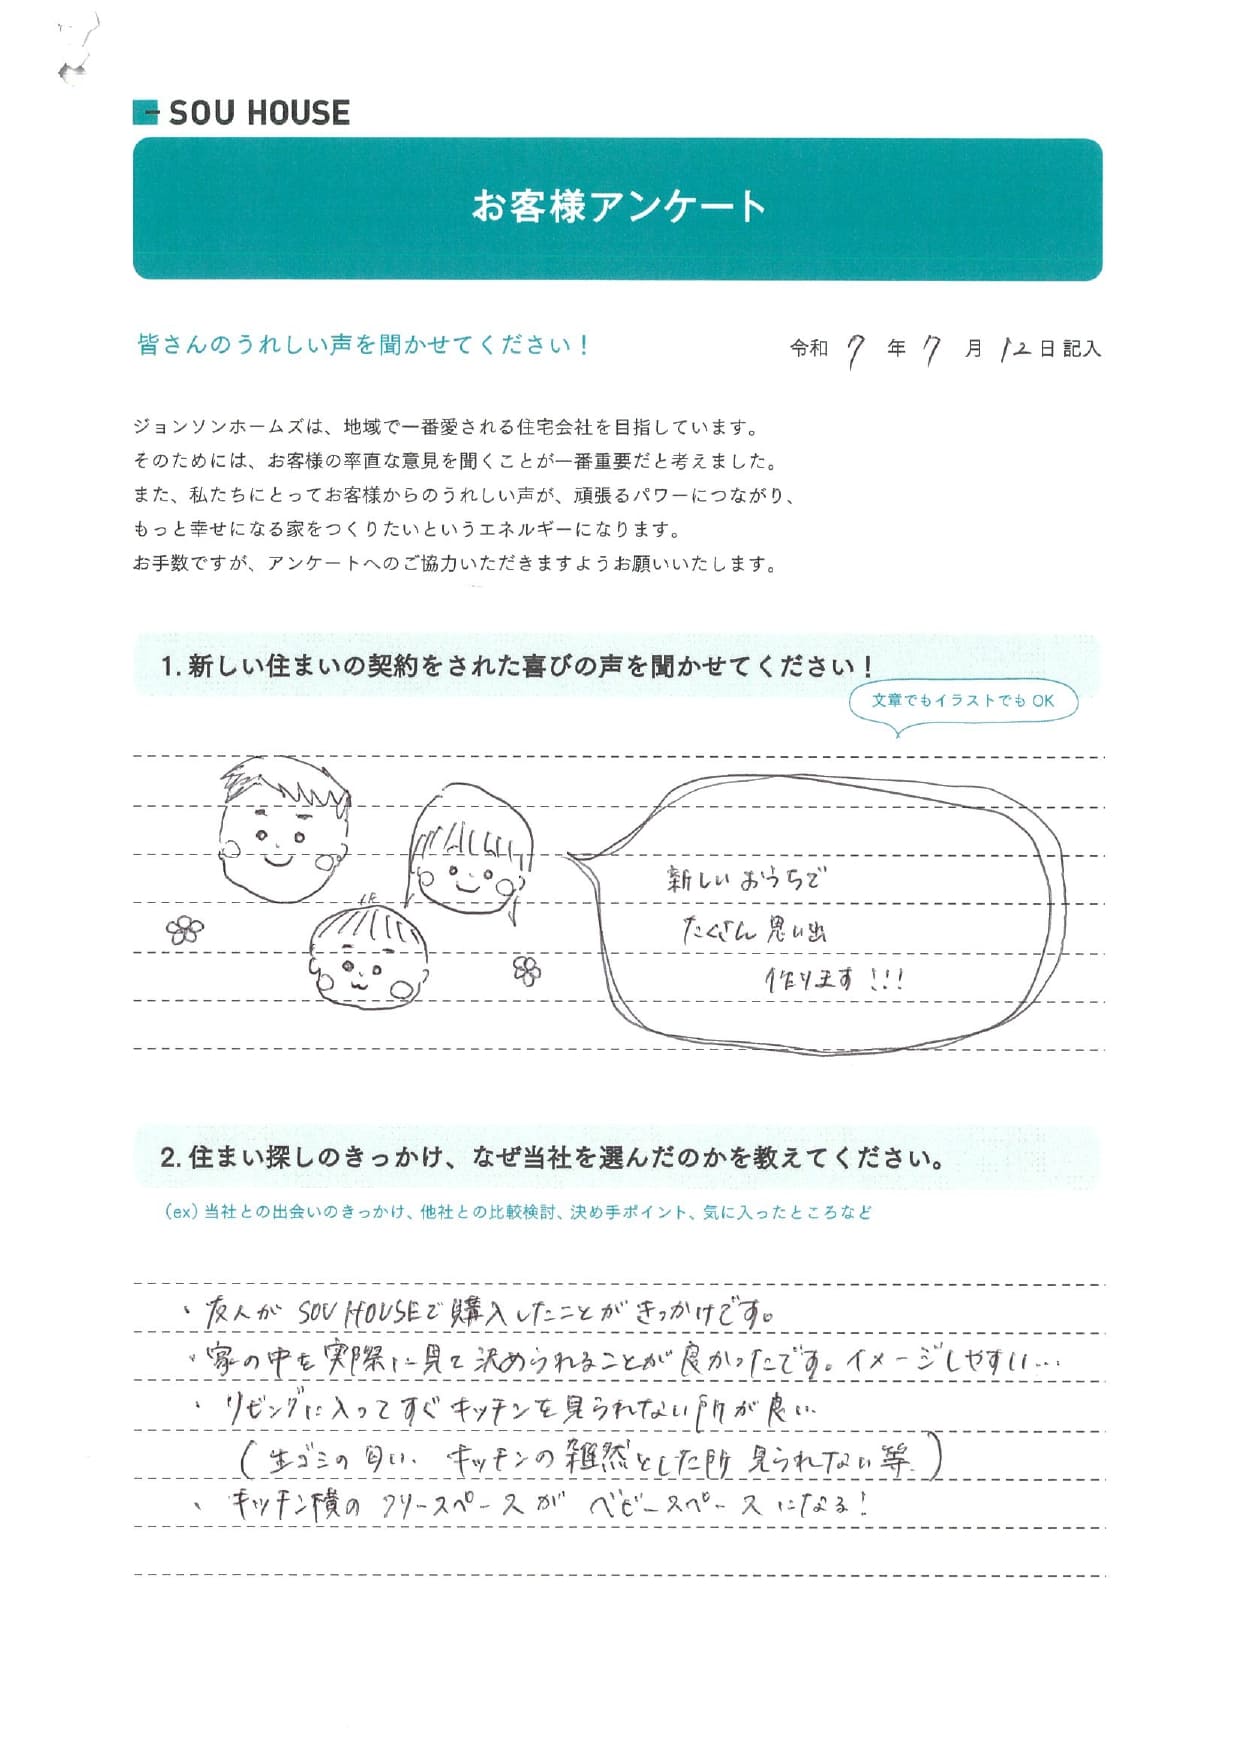 SOU HOUSE
お客様アンケート
皆さんのうれしい声を聞かせてください！
令和 7 年 7 月 12 日 記入
ジョンソンホームズは、地域で一番愛される住宅会社を目指しています。
そのためには、お客様の率直な意見を聞くことが一番重要だと考えました。
また、私たちにとってお客様からのうれしい声が、頑張るパワーにつながり、
もっと幸せになる家をつくりたいというエネルギーになります。
お手数ですが、アンケートへのご協力いただきますようお願いいたします。
1. 新しい住まいの契約をされた喜びの声を聞かせてください！
文章でもイラストでも OK
新しいおうちで
たくさん思い出
作ります！！！
2. 住まい探しのきっかけ、なぜ当社を選んだのかを教えてください。
（ex）当社との出会いのきっかけ、他社との比較検討、決め手ポイント、気に入ったところなど
・友人が SOU HOUSEで購入したことがきっかけです。
・家の中を実際に見て決められることが良かったです。イメージしやすい…
・リビングに入ってすぐキッチンを見られない所が良い
（生ゴミの匂い、キッチンの雑然とした所 見られない等）
・キッチン横のフリースペースがベビースペースになる！